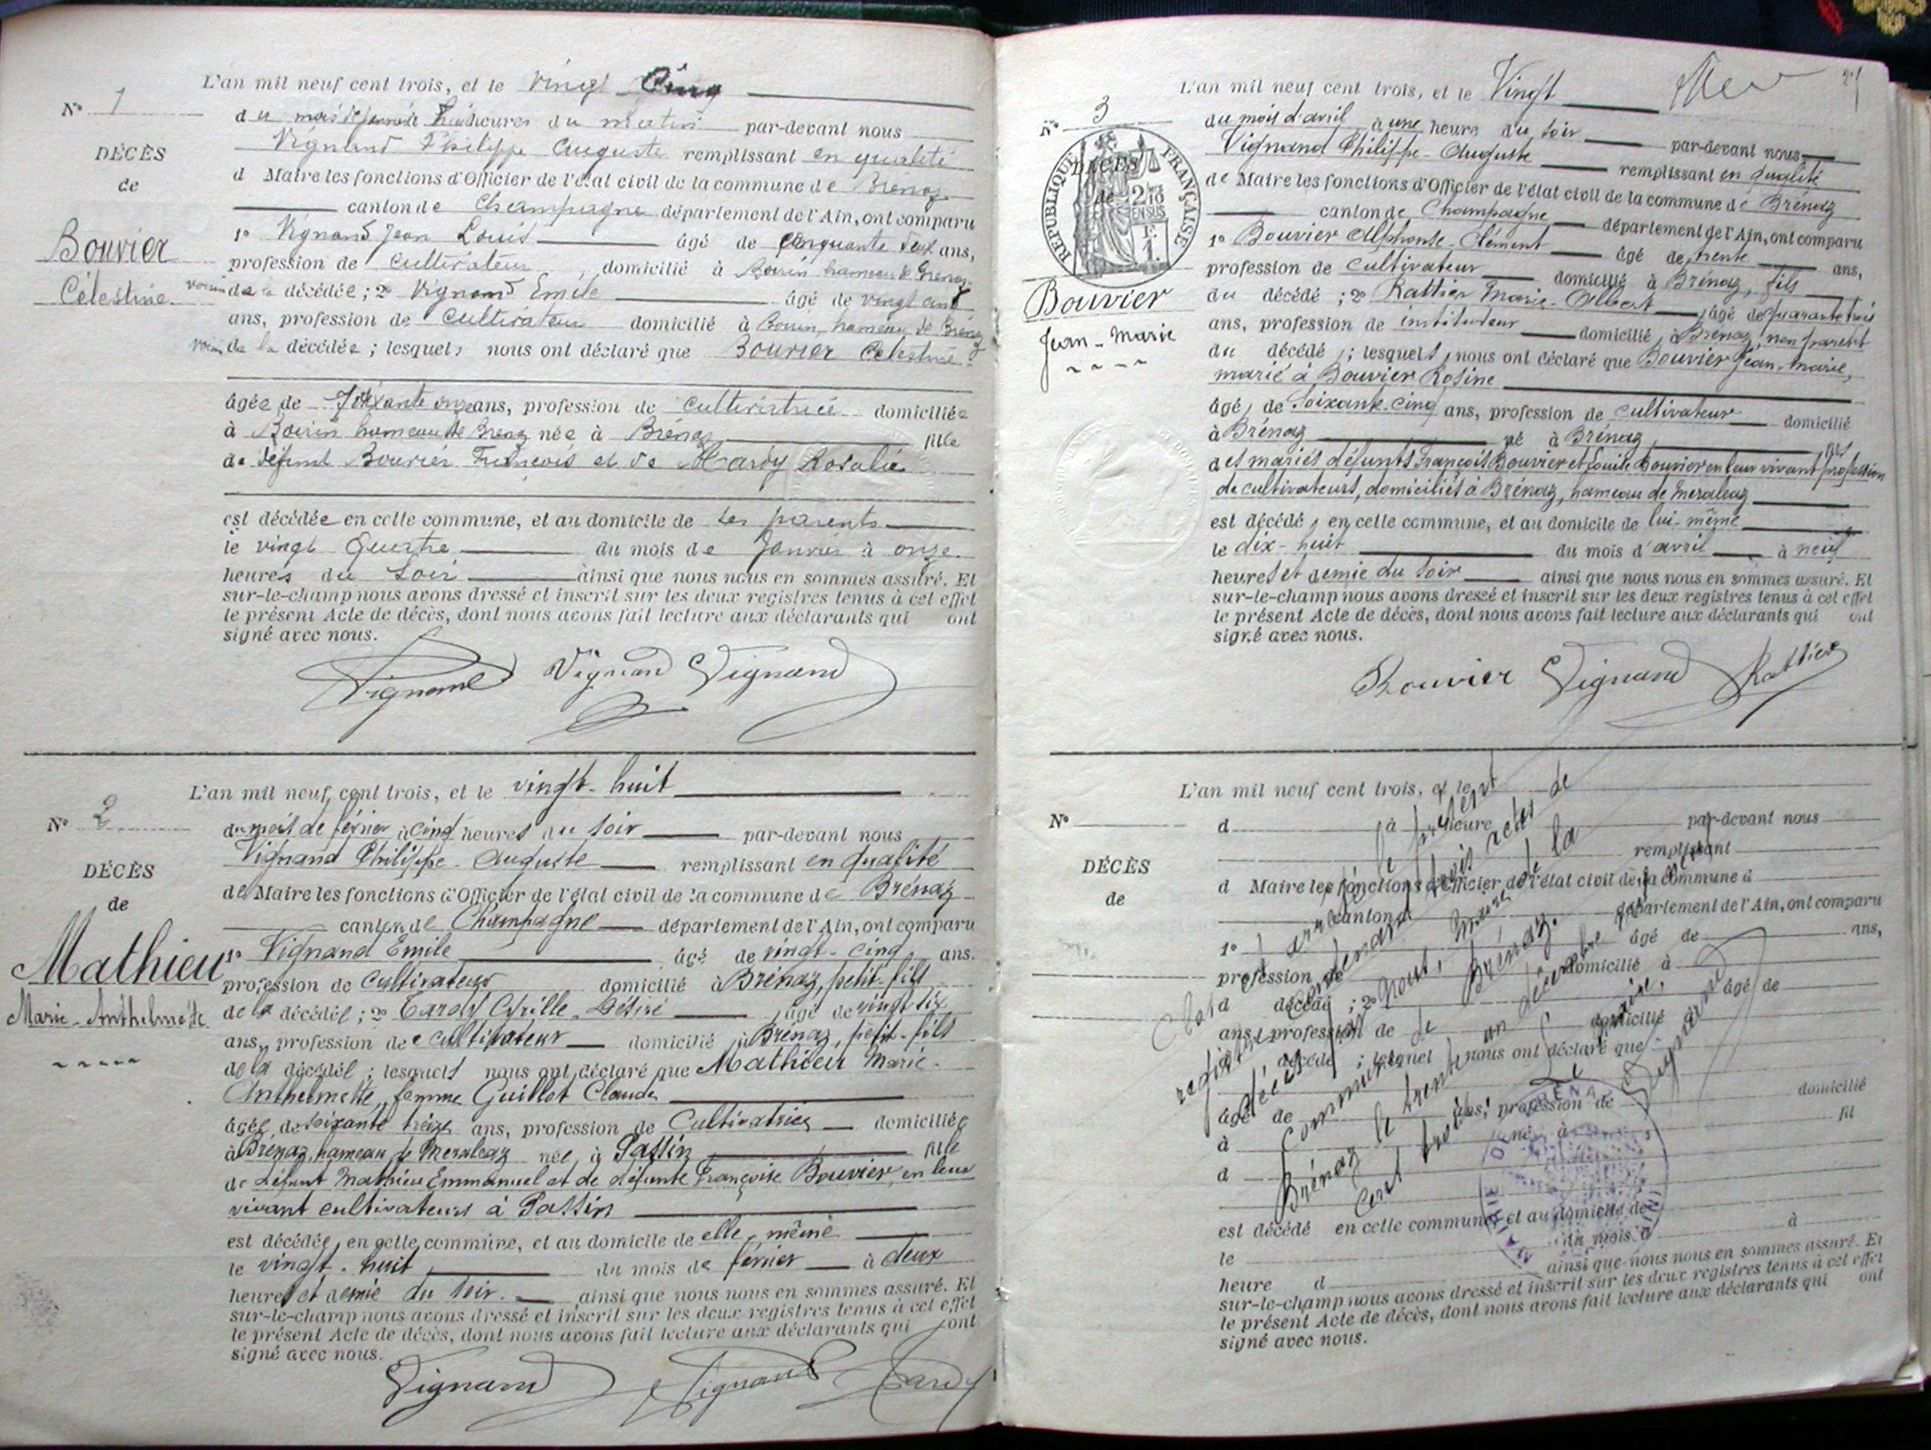 N° 1
DÉCÈS
de
Bouvier
Célestine
L'an mil neuf cent trois, et le vingt Cinq
du mois de Janvier à huit heures du matin par-devant nous
Vignand Philippe Auguste remplissant en qualité
d Maire les fonctions d'Officier de l'état civil de la commune de Brénaz
canton de Champagne département de l'Ain, ont comparu
1° Vignand Jean Louis âgé de cinquante deux ans,
profession de cultivateur, domicilié à hameau de Brénaz
voisin de la décédée; 2° Vignand Emile âgé de vingt cinq
ans, profession de cultivateur domicilié à hameau de Brénaz
voisin de la décédée; lesquels nous ont déclaré que Bouvier Célestine
âgée de soixante onze ans, profession de cultivatrice domiciliée
à hameau de Brénaz née à Brénaz fille
de défunt Bouvier François et de Rosalie
est décédée en cette commune, et au domicile de ses parents
le vingt quatre du mois de Janvier à onze
heures du soir ainsi que nous nous en sommes assuré. Et
sur-le-champ nous avons dressé et inscrit sur les deux registres tenus à cet effet
le présent Acte de décès, dont nous avons fait lecture aux déclarants qui ont
signé avec nous.
Vignand Vignand Vignand
N° 2
DÉCÈS
de
Mathieu
Marie-Anthelmette
L'an mil neuf cent trois, et le vingt-huit
du mois de février à cinq heures du soir par-devant nous
Vignand Philippe-Auguste remplissant en qualité
de Maire les fonctions d'Officier de l'état civil de la commune de Brénaz
canton de Champagne département de l'Ain, ont comparu
1° Vignand Emile âgé de vingt-cinq ans.
profession de cultivateur domicilié à Brénaz, petit-fils
de la décédée; 2° Tardy Cyrille-Désiré, âgé de vingt six
ans, profession de cultivateur domicilié à Brénaz, petit-fils
de la décédée; lesquels nous ont déclaré que Mathieu Marie-
Anthelmette, femme Guillot Claude
âgée de soixante treize ans, profession de Cultivatrice domiciliée
à Brénaz, hameau de Meraleaz née à Passin fille
de défunt Mathieu Emmanuel et de défunte Françoise Bouvier, en leur
vivant cultivateurs à Passin
est décédée, en cette commune, et au domicile de elle-même
le vingt-huit du mois de février à deux
heures et demie du soir ainsi que nous nous en sommes assuré. Et
sur-le-champ nous avons dressé et inscrit sur les deux registres tenus à cet effet
le présent Acte de décès, dont nous avons fait lecture aux déclarants qui ont
signé avec nous.
Vignand Vignand Tardy
N° 3
RÉPUBLIQUE FRANÇAISE
2/10 EN SUS
DÉCÈS
de
Bouvier
Jean-Marie
L'an mil neuf cent trois, et le Vingt
du mois d'avril à une heure du soir par-devant nous
Vignand Philippe-Auguste remplissant en qualité
de Maire les fonctions d'Officier de l'état civil de la commune de Brénaz
canton de Champagne département de l'Ain, ont comparu
1° Bouvier Alphonse-Clément âgé de trente ans,
profession de cultivateur domicilié à Brénaz, fils
du décédé; 2° Rattier Marie-Albert, âgé de quarante trois
ans, profession de instituteur domicilié à Brénaz, non parent
du décédé; lesquels nous ont déclaré que Bouvier Jean-Marie,
marié à Bouvier Rosine
âgé de soixante-cinq ans, profession de cultivateur domicilié
à Brénaz né à Brénaz fils
des mariés défunts François Bouvier et Louise Bouvier en leur vivant profession
de cultivateurs, domiciliés à Brénaz, hameau de Meraleaz
est décédé, en cette commune, et au domicile de lui-même
le dix-huit du mois d'avril à neuf
heures et demie du soir ainsi que nous nous en sommes assuré. Et
sur-le-champ nous avons dressé et inscrit sur les deux registres tenus à cet effet
le présent Acte de décès, dont nous avons fait lecture aux déclarants qui ont
signé avec nous.
Bouvier Vignand Rattier
L'an mil neuf cent trois, et le
N°
d à heure par-devant nous
remplissant
DÉCÈS
de
d Maire les fonctions d'Officier de l'état civil de la commune d
canton d département de l'Ain, ont comparu
1° âgé de ans,
profession de domicilié à
d décédé; 2° âgé de
ans, profession de domicilié à
d décédé; lesquel nous ont déclaré que
âgé de ans, profession de domicilié
à né à fil
d
est décédé en cette commune, et au domicile de
le du mois d à
heure d ainsi que nous nous en sommes assuré. Et
sur-le-champ nous avons dressé et inscrit sur les deux registres tenus à cet effet
le présent Acte de décès, dont nous avons fait lecture aux déclarants qui ont
signé avec nous.
Clos et arrêté le présent
registre contenant trois actes de
décès par nous, maire de la
commune de Brénaz.
Brénaz le trente un décembre mil neuf
cent trois,
Le maire,
Vignand
MAIRIE DE BRÉNAZ (AIN)